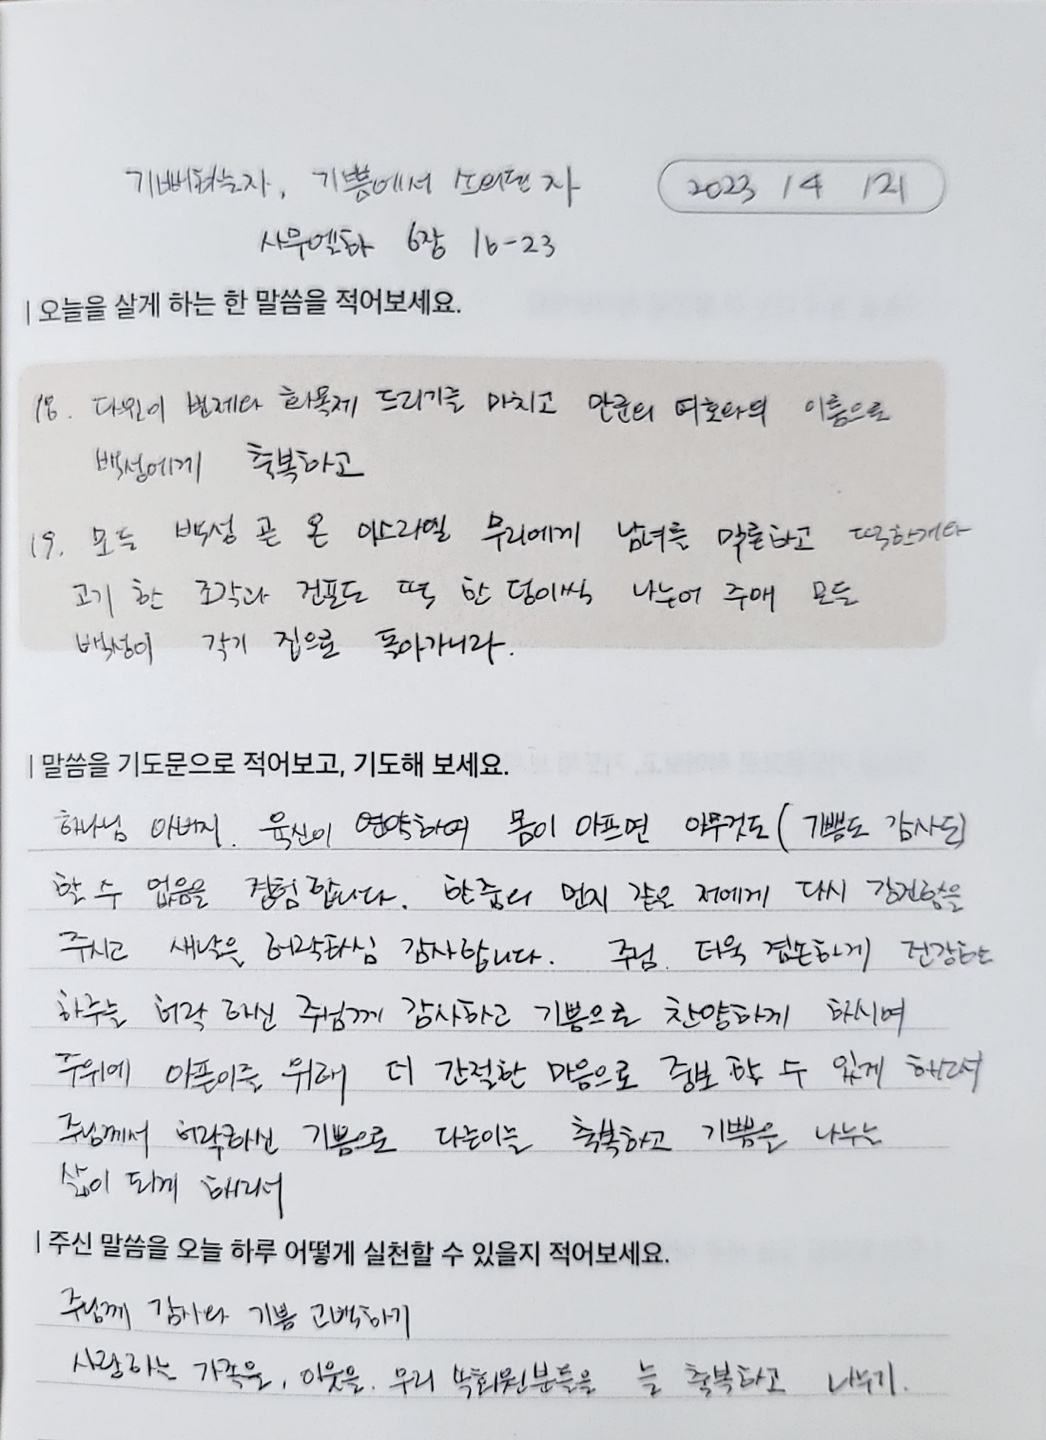 기뻐하는자, 기쁨에서 소외된 자
2023 / 4 / 21
사무엘하 6장 16-23
| 오늘을 살게 하는 한 말씀을 적어보세요.
18. 다윗이 번제와 화목제 드리기를 마치고 만군의 여호와의 이름으로
백성에게 축복하고
19. 모든 백성 곧 온 이스라엘 무리에게 남녀를 막론하고 떡한개와
고기 한 조각과 건포도 떡 한 덩이씩 나누어 주매 모든
백성이 각기 집으로 돌아가니라.
| 말씀을 기도문으로 적어보고, 기도해 보세요.
하나님 아버지. 육신이 연약하여 몸이 아프면 아무것도 ( 기쁨도 감사도)
할 수 없음을 경험합니다. 한줌의 먼지 같은 저에게 다시 강건함을
주시고 새날을 허락하심 감사합니다. 주님. 더욱 겸손하게 건강한
하루를 허락 하신 주님께 감사하고 기쁨으로 찬양하게 하시며
주위에 아픈이를 위해 더 간절한 마음으로 중보 할 수 있게 하소서
주님께서 허락하신 기쁨으로 다른이를 축복하고 기쁨을 나누는
삶이 되게 하소서
| 주신 말씀을 오늘 하루 어떻게 실천할 수 있을지 적어보세요.
주님께 감사와 기쁨 고백하기
사랑하는 가족을, 이웃을. 우리 속회원분들을 늘 축복하고 나누기.